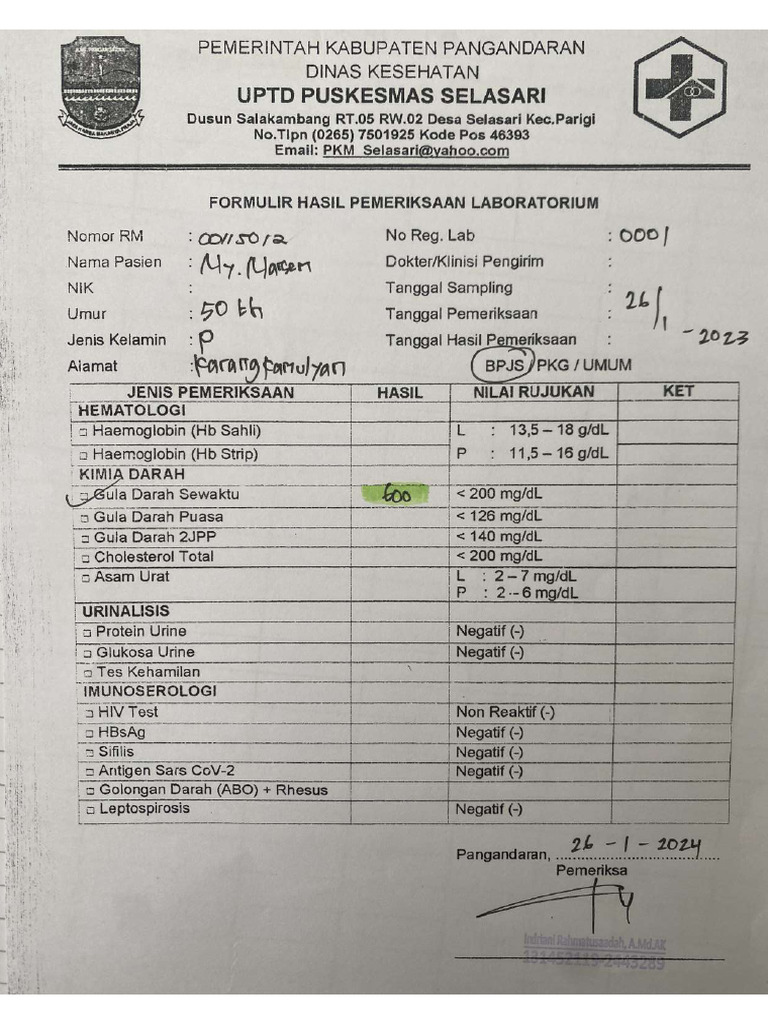 PEMERINTAH KABUPATEN PANGANDARAN
DINAS KESEHATAN
UPTD PUSKESMAS SELASARI
Dusun Salakambang RT.05 RW.02 Desa Selasari Kec.Parigi
No.Tlpn (0265) 7501925 Kode Pos 46393
Email: PKM_Selasari@yahoo.com
FORMULIR HASIL PEMERIKSAAN LABORATORIUM
Nomor RM : 00115012 No Reg. Lab : 0001
Nama Pasien : Ny. Dokter/Klinisi Pengirim :
NIK : Tanggal Sampling :
Umur : 50 th Tanggal Pemeriksaan : 26/1
Jenis Kelamin : P Tanggal Hasil Pemeriksaan : - 2023
Alamat : Karangkamulyan BPJS / PKG / UMUM
JENIS PEMERIKSAAN HASIL NILAI RUJUKAN KET
HEMATOLOGI
Haemoglobin (Hb Sahli) L : 13,5 – 18 g/dL
Haemoglobin (Hb Strip) P : 11,5 – 16 g/dL
KIMIA DARAH
Gula Darah Sewaktu 600 < 200 mg/dL
Gula Darah Puasa < 126 mg/dL
Gula Darah 2JPP < 140 mg/dL
Cholesterol Total < 200 mg/dL
Asam Urat L : 2 – 7 mg/dL
P : 2 – 6 mg/dL
URINALISIS
Protein Urine Negatif (-)
Glukosa Urine Negatif (-)
Tes Kehamilan
IMUNOSEROLOGI
HIV Test Non Reaktif (-)
HBsAg Negatif (-)
Sifilis Negatif (-)
Antigen Sars CoV-2 Negatif (-)
Golongan Darah (ABO) + Rhesus
Leptospirosis Negatif (-)
Pangandaran, 26 - 1 - 2024
Pemeriksa
Indriani Rahmatusaadah, A.Md.AK
131452119-2443289